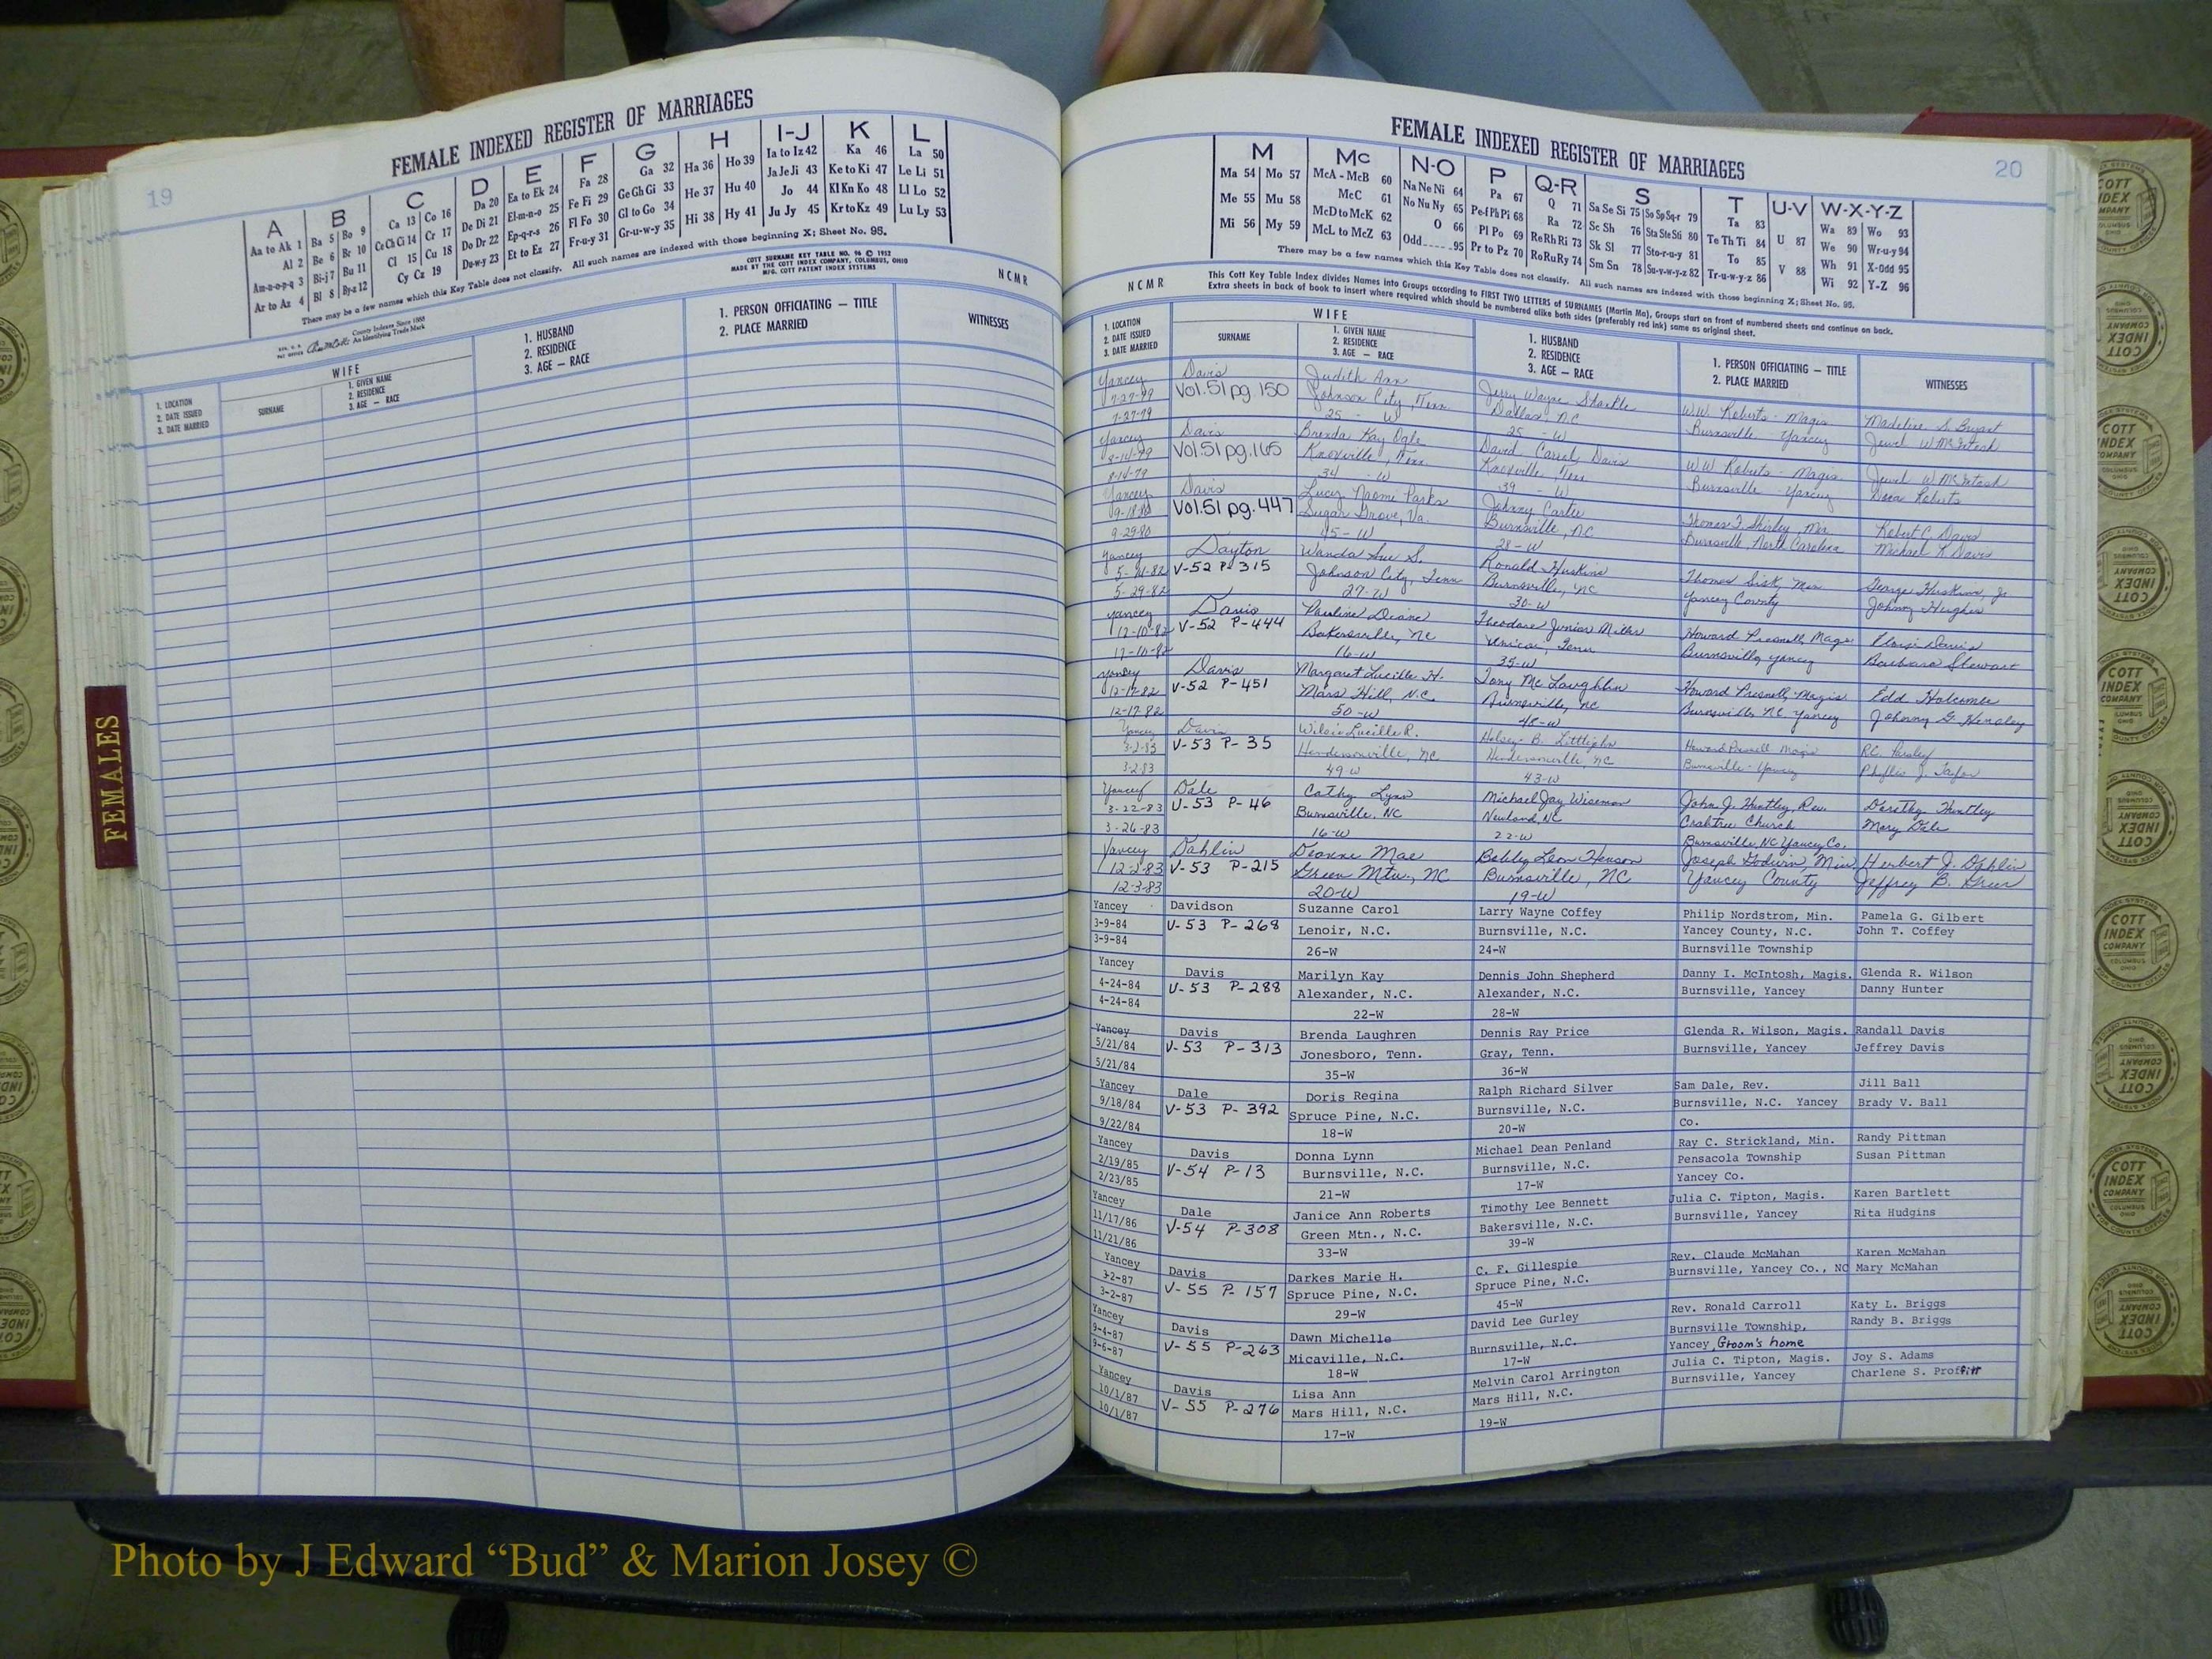 19
FEMALE INDEXED REGISTER OF MARRIAGES
A B C D E F G H I-J K L
Aa to Ak 1 Ba 5 Bo 9 Ca 13 Co 16 Da 20 Ea to Ek 24 Fa 28 Ga 32 Ha 36 Ho 39 Ia to Iz 42 Ka 46 La 50
Al 2 Be 6 Br 10 Ce Ch Ci 14 Cr 17 De Di 21 El-m-n-o 25 Fe Fi 29 Ge Gh Gi 33 He 37 Hu 40 Ja Je Ji 43 Ke to Ki 47 Le Li 51
Am-n-o-p-q 3 Bi-j 7 Bu 11 Cl 15 Cu 18 Do Dr 22 Ep-q-r-s 26 Fl Fo 30 Gl to Go 34 Hi 38 Hy 41 Jo 44 Kl Kn Ko 48 Ll Lo 52
Ar to Az 4 Bl 8 By-z 12 Cy Cz 19 Du-w-y 23 Et to Ez 27 Fr-u-y 31 Gr-u-w-y 35 Ju Jy 45 Kr to Kz 49 Lu Ly 53
There may be a few names which this Key Table does not classify. All such names are indexed with those beginning X; Sheet No. 95.
COTT SURNAME KEY TABLE NO. 96 © 1952
MADE BY THE COTT INDEX COMPANY, COLUMBUS, OHIO
MFG. COTT PATENT INDEX SYSTEMS
County Indexes Since 1888
An Identifying Trade Mark
NCMR
1. LOCATION
2. DATE ISSUED
3. DATE MARRIED
WIFE
SURNAME
1. GIVEN NAME
2. RESIDENCE
3. AGE — RACE
1. HUSBAND
2. RESIDENCE
3. AGE — RACE
1. PERSON OFFICIATING — TITLE
2. PLACE MARRIED
WITNESSES
FEMALES
FEMALE INDEXED REGISTER OF MARRIAGES
20
M Mc N-O P Q-R S T U-V W-X-Y-Z
Ma 54 Mo 57 McA - McB 60 Na Ne Ni 64 Pa 67 Q 71 Sa Se Si 75 So Sp Sq-r 79 Ta 83 U 87 Wa 89 Wo 93
Me 55 Mu 58 McC 61 No Nu Ny 65 Pe-f Ph Pi 68 Ra 72 Sc Sh 76 Sta Ste Sti 80 Te Th Ti 84 V 88 We 90 Wr-u-y 94
Mi 56 My 59 McD to McK 62 O 66 Pl Po 69 Re Rh Ri 73 Sk Sl 77 Sto-r-u-y 81 To 85 Wh 91 X-Odd 95
McL to McZ 63 Odd 95 Pr to Pz 70 Ro Ru Ry 74 Sm Sn 78 Su-v-w-y-z 82 Tr-u-w-y-z 86 Wi 92 Y-Z 96
There may be a few names which this Key Table does not classify. All such names are indexed with those beginning X; Sheet No. 95.
NCMR
This Cott Key Table Index divides Names into Groups according to FIRST TWO LETTERS of SURNAMES (Martin Ma). Groups start on front of numbered sheets and continue on back.
Extra sheets in back of book to insert where required which should be numbered alike both sides (preferably red ink) same as original sheet.
1. LOCATION
2. DATE ISSUED
3. DATE MARRIED
WIFE
SURNAME
1. GIVEN NAME
2. RESIDENCE
3. AGE — RACE
1. HUSBAND
2. RESIDENCE
3. AGE — RACE
1. PERSON OFFICIATING — TITLE
2. PLACE MARRIED
WITNESSES
Yancey Davis Judith Ann Jerry Wayne W.W. Roberts - Magis Madeline S. Bryant
7-27-79 Vol.51 pg.150 Johnson City, Tenn Dallas, N.C. Burnsville Yancey Jewel W McIntosh
7-27-79 25 - W 25 - W
Yancey Davis Brenda Kay Ogle David Carrol Davis W.W. Roberts - Magis. Jewel W McIntosh
8-14-79 Vol.51 pg.165 Knoxville, Tenn Knoxville, Tenn Burnsville - Yancey Roberts
8-14-79 34 - W 39 - W
Yancey Davis Lucy Naomi Parks Johnny Carter Thomas F. Shirley, Min. Robert C. Davis
9-18-80 Vol.51 pg.447 Sugar Grove, Va. Burnsville, NC Burnsville, North Carolina Michael K Davis
9-29-80 45-W 28-W
Yancey Dayton Wanda Sue S. Ronald Huskins Thomas Sisk, Min George Huskins, Jr
5- -82 V-52 P-315 Johnson City, Tenn Burnsville, NC Yancey County Johnny Hughes
5-29-82 27-W 30-W
Yancey Davis Pauline Diane Theodore Junior Miller Howard Presnell, Magis Davis
12-10-82 V-52 P-444 Bakersville, NC Unicoi, Tenn Burnsville, Yancey Barbara Stewart
12-10-82 16-W 35-W
Yancey Davis Margaret Lucille H. Tony McLaughlin Howard Presnell, Magis Edd Holcombe
12-17-82 V-52 P-451 Mars Hill, N.C. Burnsville, NC Burnsville NC Yancey Johnny G. Hensley
12-17-82 50-W 48-W
Yancey Davis Lucille R. B. Littlejohn Howard Presnell Magis R.C. Hensley
3-2-83 V-53 P-35 Hendersonville, NC Hendersonville, NC Burnsville - Yancey Phyllis J. Taylor
3-2-83 49 W 43-W
Yancey Dale Cathy Lynn Michael Jay Wiseman John J. Huntley, Rev. Dorothy Huntley
3-22-83 V-53 P-46 Burnsville, NC Newland, NC Crabtree Church Mary Dale
3-26-83 16-W 22-W Burnsville, NC Yancey Co.
Yancey Dahlin Deanne Mae Bobby Leon Henson Joseph Godwin, Min Herbert J. Dahlin
12-2-83 V-53 P-215 Green Mtn., NC Burnsville, NC Yancey County Jeffrey B. Greer
12-3-83 20-W 19-W
Yancey Davidson Suzanne Carol Larry Wayne Coffey Philip Nordstrom, Min. Pamela G. Gilbert
3-9-84 V-53 P-268 Lenoir, N.C. Burnsville, N.C. Yancey County, N.C. John T. Coffey
3-9-84 26-W 24-W Burnsville Township
Yancey Davis Marilyn Kay Dennis John Shepherd Danny I. McIntosh, Magis. Glenda R. Wilson
4-24-84 V-53 P-288 Alexander, N.C. Alexander, N.C. Burnsville, Yancey Danny Hunter
4-24-84 22-W 28-W
Yancey Davis Brenda Laughren Dennis Ray Price Glenda R. Wilson, Magis. Randall Davis
5/21/84 V-53 P-313 Jonesboro, Tenn. Gray, Tenn. Burnsville, Yancey Jeffrey Davis
5/21/84 35-W 36-W
Yancey Dale Doris Regina Ralph Richard Silver Sam Dale, Rev. Jill Ball
9/18/84 V-53 P-392 Spruce Pine, N.C. Burnsville, N.C. Burnsville, N.C. Yancey Brady V. Ball
9/22/84 18-W 20-W Co.
Yancey Davis Donna Lynn Michael Dean Penland Ray C. Strickland, Min. Randy Pittman
2/19/85 V-54 P-13 Burnsville, N.C. Burnsville, N.C. Pensacola Township Susan Pittman
2/23/85 21-W 17-W Yancey Co.
Yancey Dale Janice Ann Roberts Timothy Lee Bennett Julia C. Tipton, Magis. Karen Bartlett
11/17/86 V-54 P-308 Green Mtn., N.C. Bakersville, N.C. Burnsville, Yancey Rita Hudgins
11/21/86 33-W 39-W
Yancey Davis Darkes Marie H. C. F. Gillespie Rev. Claude McMahan Karen McMahan
3-2-87 V-55 P-157 Spruce Pine, N.C. Spruce Pine, N.C. Burnsville, Yancey Co., NC Mary McMahan
3-2-87 29-W 45-W
Yancey Davis Dawn Michelle David Lee Gurley Rev. Ronald Carroll Katy L. Briggs
9-4-87 V-55 P-263 Micaville, N.C. Burnsville, N.C. Burnsville Township, Randy B. Briggs
9-6-87 18-W 17-W Yancey, Groom's home
Yancey Davis Lisa Ann Melvin Carol Arrington Julia C. Tipton, Magis. Joy S. Adams
10/1/87 V-55 P-276 Mars Hill, N.C. Mars Hill, N.C. Burnsville, Yancey Charlene S. Proffitt
10/1/87 17-W 19-W
COTT INDEX COMPANY COLUMBUS OHIO
Photo by J Edward “Bud” & Marion Josey ©